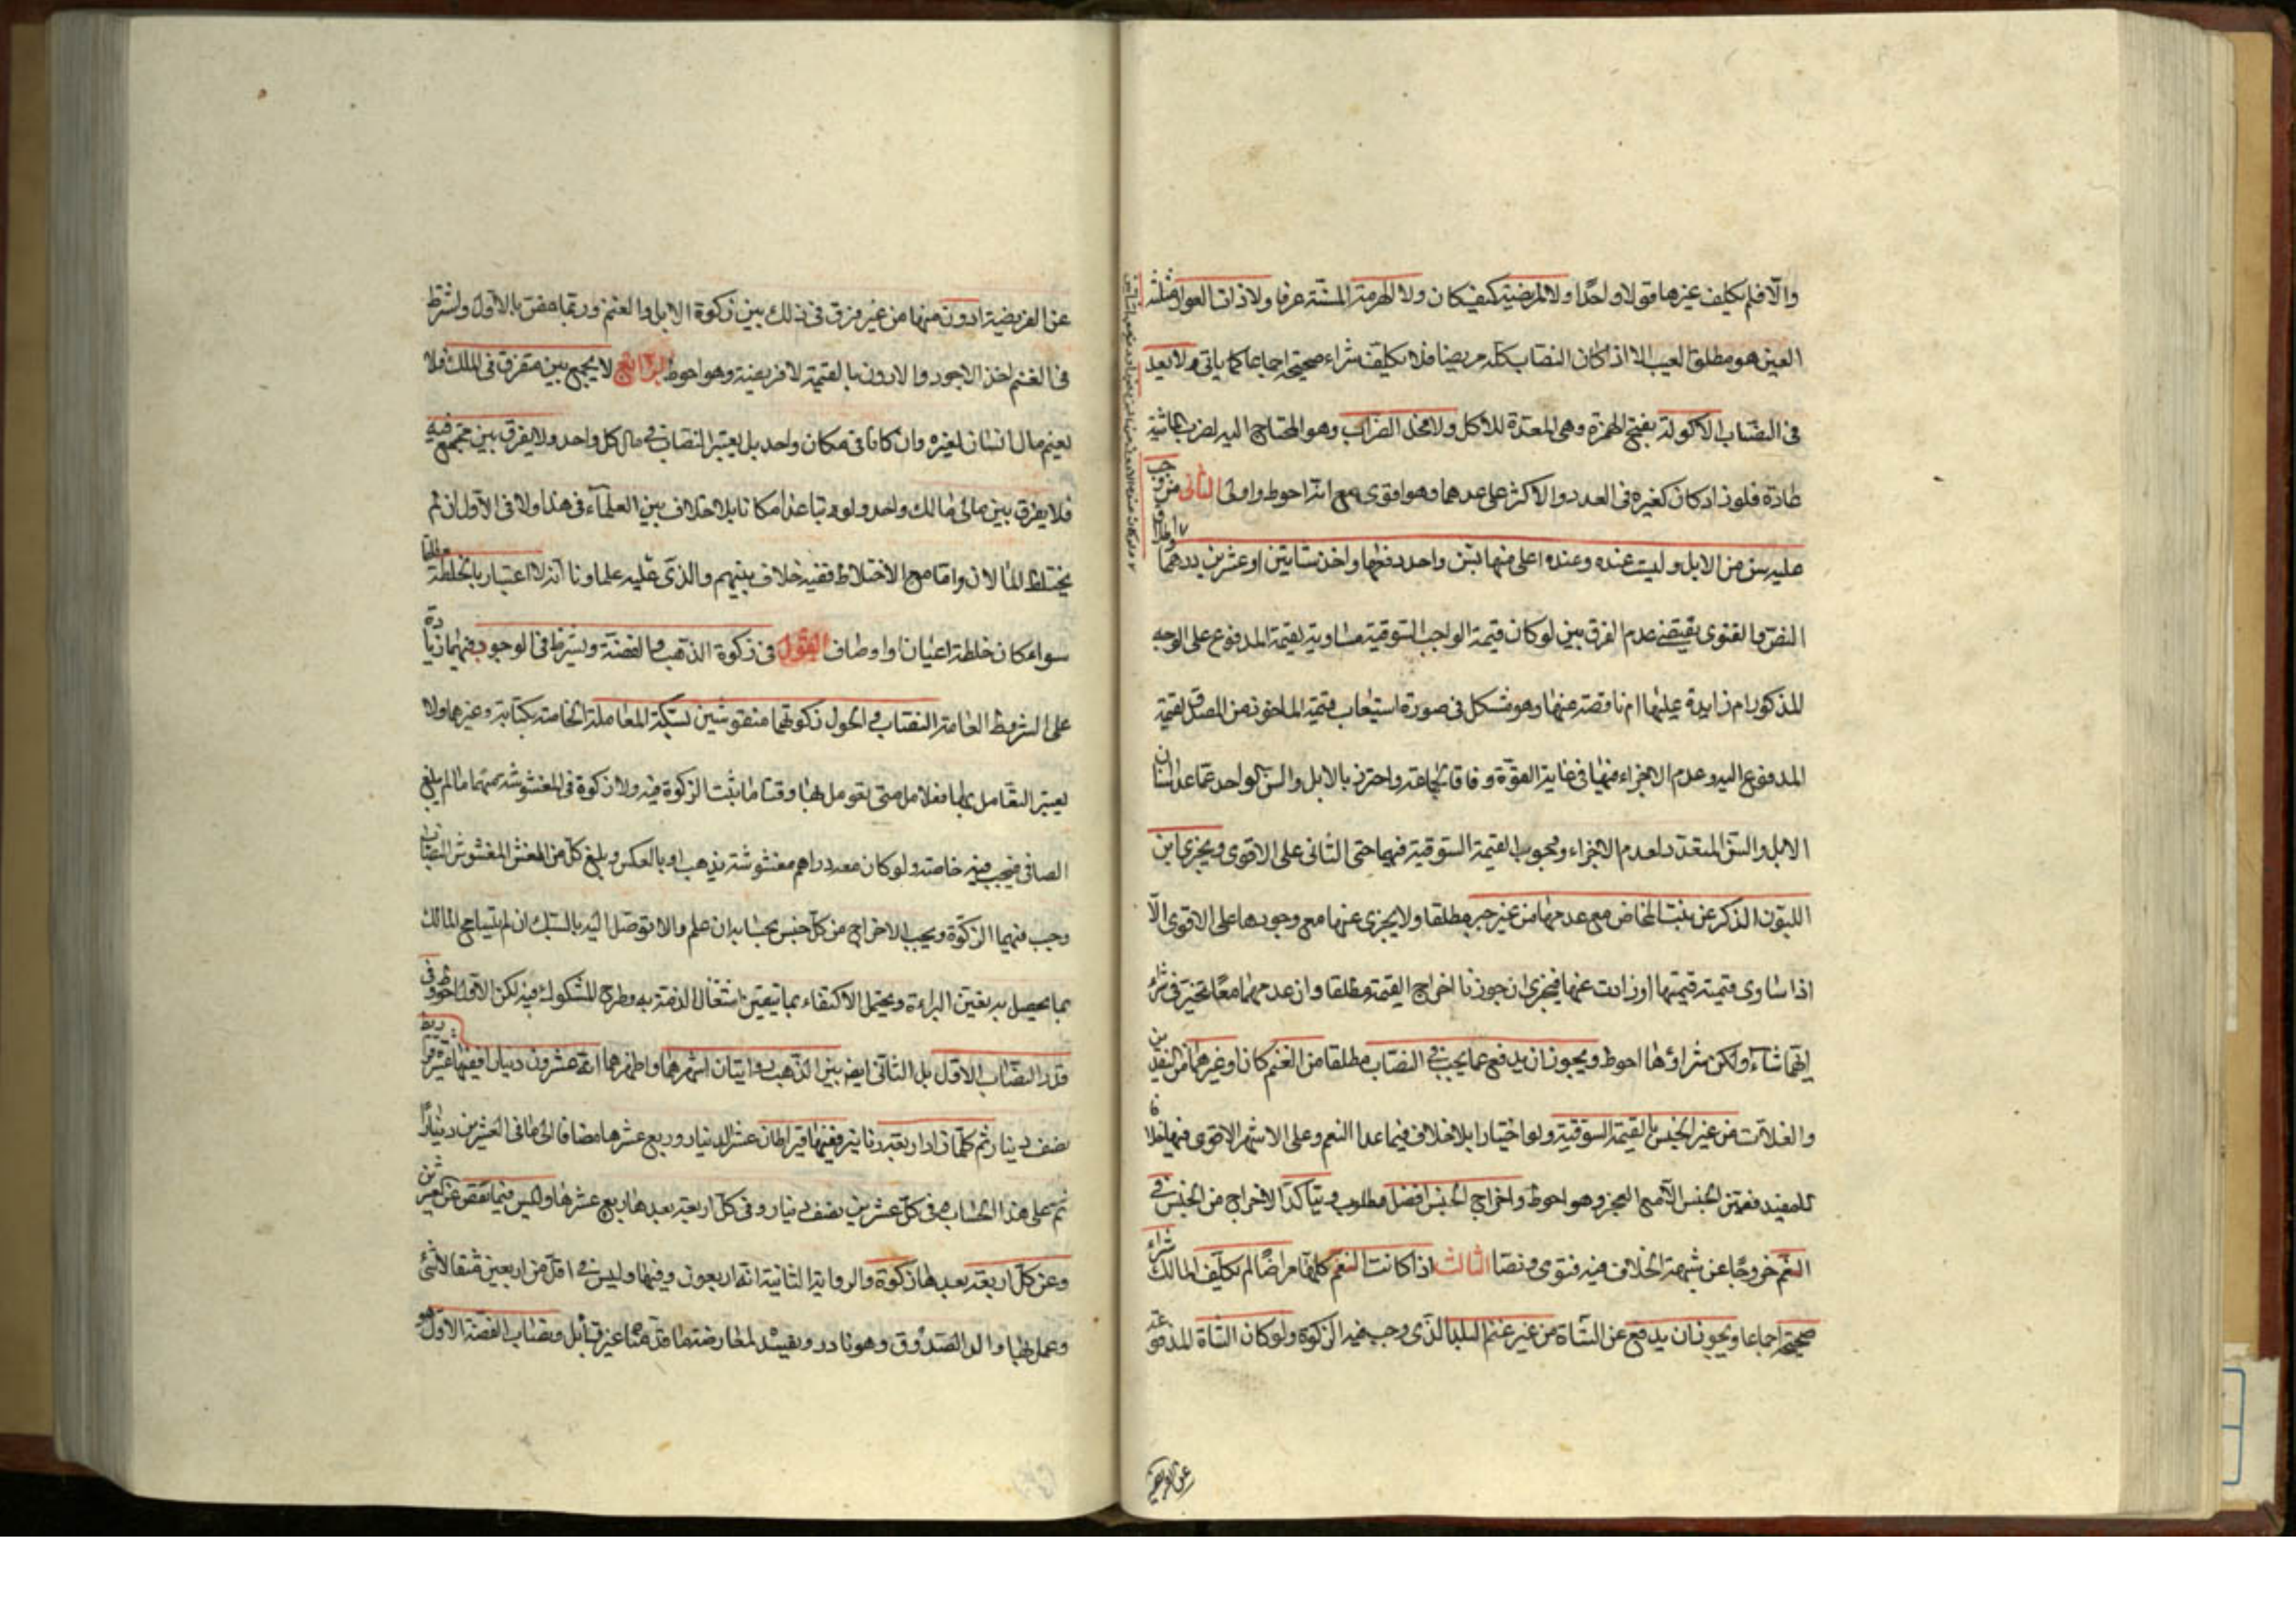 والا فلم يكلف غيرها قولا واحدا ولا المريضة كيف كان ولا الهرمة المسنة عرفا ولا ذات العوار مثلثة
العين هو مطلق العيب الا اذا كان النصاب كله مريضا فلا يكلف شراء صحيحة اجماعا كما ياتي ولا يعد
في النصاب الاكولة بفتح الهمزة وهي المعدة للاكل ولا فحل الضراب وهو المحتاج اليه لضرب الماشية
عادة فلو زاد كان كغيره في العدد والاكثر على عدهما وهو اقوى مع انه احوط واولى الثاني من وجب
عليه سن من الابل وليست عنده وعنده اعلى منها بسن واحد دفعها واخذ شاتين او عشرين درهما واطلاق
النص والفتوى يقتضي عدم الفرق بين لو كان قيمة الواجب السوقية مساوية لقيمة المدفوع على الوجه
المذكور ام زايدة عليها ام ناقصة عنها وهو مشكل في صورة استيعاب قيمة الماخوذ من المصدق لقيمة
المدفوع اليه وعدم الاجزاء فيها في غاية القوة وفاقا لجماعة واحترز بالابل والسن الواحد عما عدا اسنان
الابل والسن المتعدد لعدم الاجزاء ووجوب القيمة السوقية فيهما حتى الثاني على الاقوى ويجزي ابن
اللبون الذكر عن بنت المخاض مع عدمها من غير جبر مطلقا ولا يجزي عنها مع وجودها على الاقوى الا
اذا ساوى قيمته قيمتها او زادت عنها فيجزي ان جوزنا اخراج القيمة مطلقا وان عدمهما معا تخير في شراء
ايهما شاء ولكن شراؤها احوط ويجوز ان يدفع عما يجب في النصاب مطلقا من الغنم كان او غيرها من النقدين
والغلات من غير الجنس بالقيمة السوقية ولو اختيارا بلا خلاف فيما عدا النعم وعلى الاشهر الاقوى فيها خلافا
للمفيد فعين الجنس الا مع العجز وهو احوط واخراج الجنس افضل مطلوب ويتاكد الاخراج من الجنس في
النعم خروجا عن شبهة الخلاف فيه فتوى ونصا الثالث اذا كانت النعم كلها مراضا لم يكلف المالك شراء
صحيحة اجماعا ويجوز ان يدفع عن الشاة من غير غنم البلد الذي وجب فيه الزكوة ولو كان الشاة المدفوعة
عن الفريضة
عن الفريضة ادون منها من غير فرق في ذلك بين زكوة الابل والغنم وربما خص بالاول ولشرط
في الغنم اخذ الاجود والادون بالقيمة لا فريضة وهو احوط الرابع لا يجمع بين متفرق في الملك فلا
يضم مال انسان لغيره وان كانا في مكان واحد بل يعتبر النصاب في مال كل واحد ولا يفرق بين مجتمع فيه
فلا يفرق بين مالي مالك واحد ولو تباعدا مكانا بلا خلاف بين العلماء في هذا ولا في الاول ان لم
يختلط المالان واما مع الاختلاط ففيه خلاف بينهم والذي عليه علماونا انه لا اعتبار بالخلطة مطلقا
سواء كان خلطة اعيان او اوصاف القول في زكوة الذهب والفضة ويشترط في الوجوب فيهما زيادة
على الشروط العامة النصاب والحول كونهما منقوشين بسكة المعاملة الخاصة بكتابة وغيرها ولا
يعتبر التعامل بها فعلا بل متى تعومل بها وقتا ما ثبت الزكوة فيه ولا زكوة في المغشوشة منهما ما لم يبلغ
الصافي فيجب فيه خاصة ولو كان معه دراهم مغشوشة بذهب او بالعكس وبلغ كل من الغش المغشوش النصاب
وجب فيهما الزكوة ويجب الاخراج من كل جنس بحسابه ان علم والا توصل اليه بالسبك ان لم يتسامح المالك
بما يحصل به يقين البراءة ويحتمل الاكتفاء بما يتيقن اشتغال الذمة به وطرح المشكوك فيه لكن الاول احوط وفي
قدر النصاب الاول بل الثاني ايضا بين الذهب روايتان اشهرهما واظهرهما انه عشرون دينارا ففيها عشرة قراريط
نصف دينار ثم كلما زاد اربعة دنانير ففيها قيراطان عشر الدينار وربع عشرها مضافا الى ما في العشرين دينارا
ثم على هذا الحساب في كل عشرين نصف دينار وفي كل اربعة بعدها ربع عشرها وليس فيما نقص عن العشرين
وعن كل اربعة بعدها زكوة والرواية الثانية انه اربعون وفيها وليس في اقل من اربعين مثقالا شئ
وعمل بها والد الصدوق وهو نادر ونصاب الفضة الاول